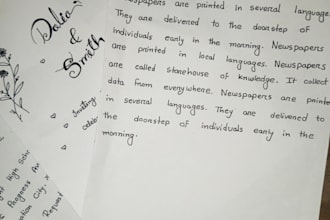 Newspapers are printed in several language
They are delivered to the doorstep of
individuals early in the morning. Newspapers
are printed in local languages. Newspapers
are called storehouse of knowledge. It collect
data from everywhere. Newspapers are printe
in several languages. They are delivered to
the doorstep of individuals early in the
morning.
Dalia
&
Smith
Inviting
High
Progress
City.
Request